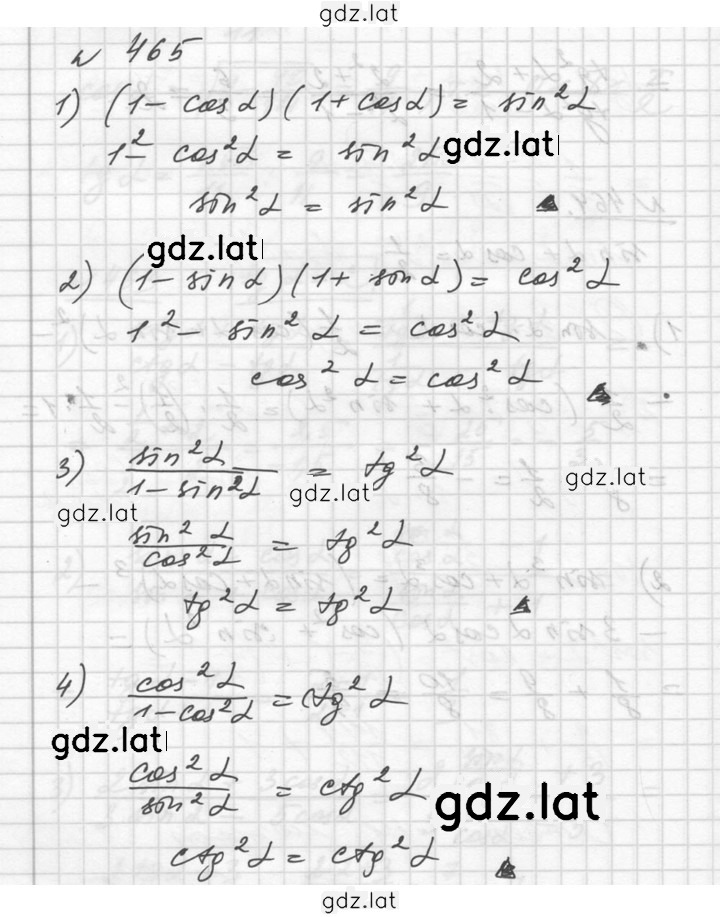 gdz.lat
№ 465
1) (1 - cos α)(1 + cos α) = sin² α
1² - cos² α = sin² α gdz.lat
sin² α = sin² α
gdz.lat
2) (1 - sin α)(1 + sin α) = cos² α
1² - sin² α = cos² α
cos² α = cos² α
3) sin² α / 1 - sin² α = tg² α
gdz.lat gdz.lat gdz.lat
sin² α / cos² α = tg² α
tg² α = tg² α
4) cos² α / 1 - cos² α = ctg² α
gdz.lat
cos² α / sin² α = ctg² α
gdz.lat
ctg² α = ctg² α
gdz.lat